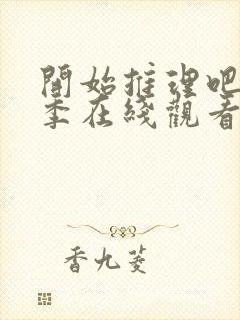 開始推理吧
季在綫觀看
香九菱